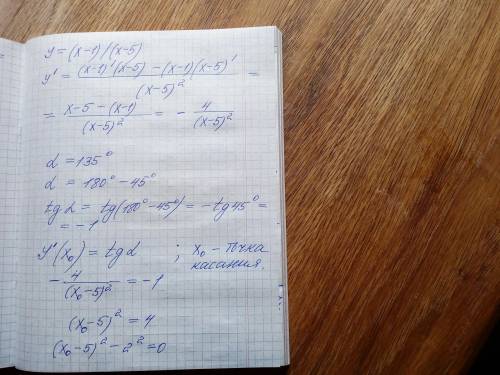 y = (x-1)/(x-5)
y' = ((x-1)'(x-5) - (x-1)(x-5)')/(x-5)² =
= (x-5-(x-1))/(x-5)² = - 4/(x-5)²
α = 135°
α = 180° - 45°
tg α = tg(180° - 45°) = -tg 45° =
= -1
y'(x₀) = tg α ; x₀ - точка
касания.
- 4/(x₀-5)² = -1
(x₀-5)² = 4
(x₀-5)² - 2² = 0